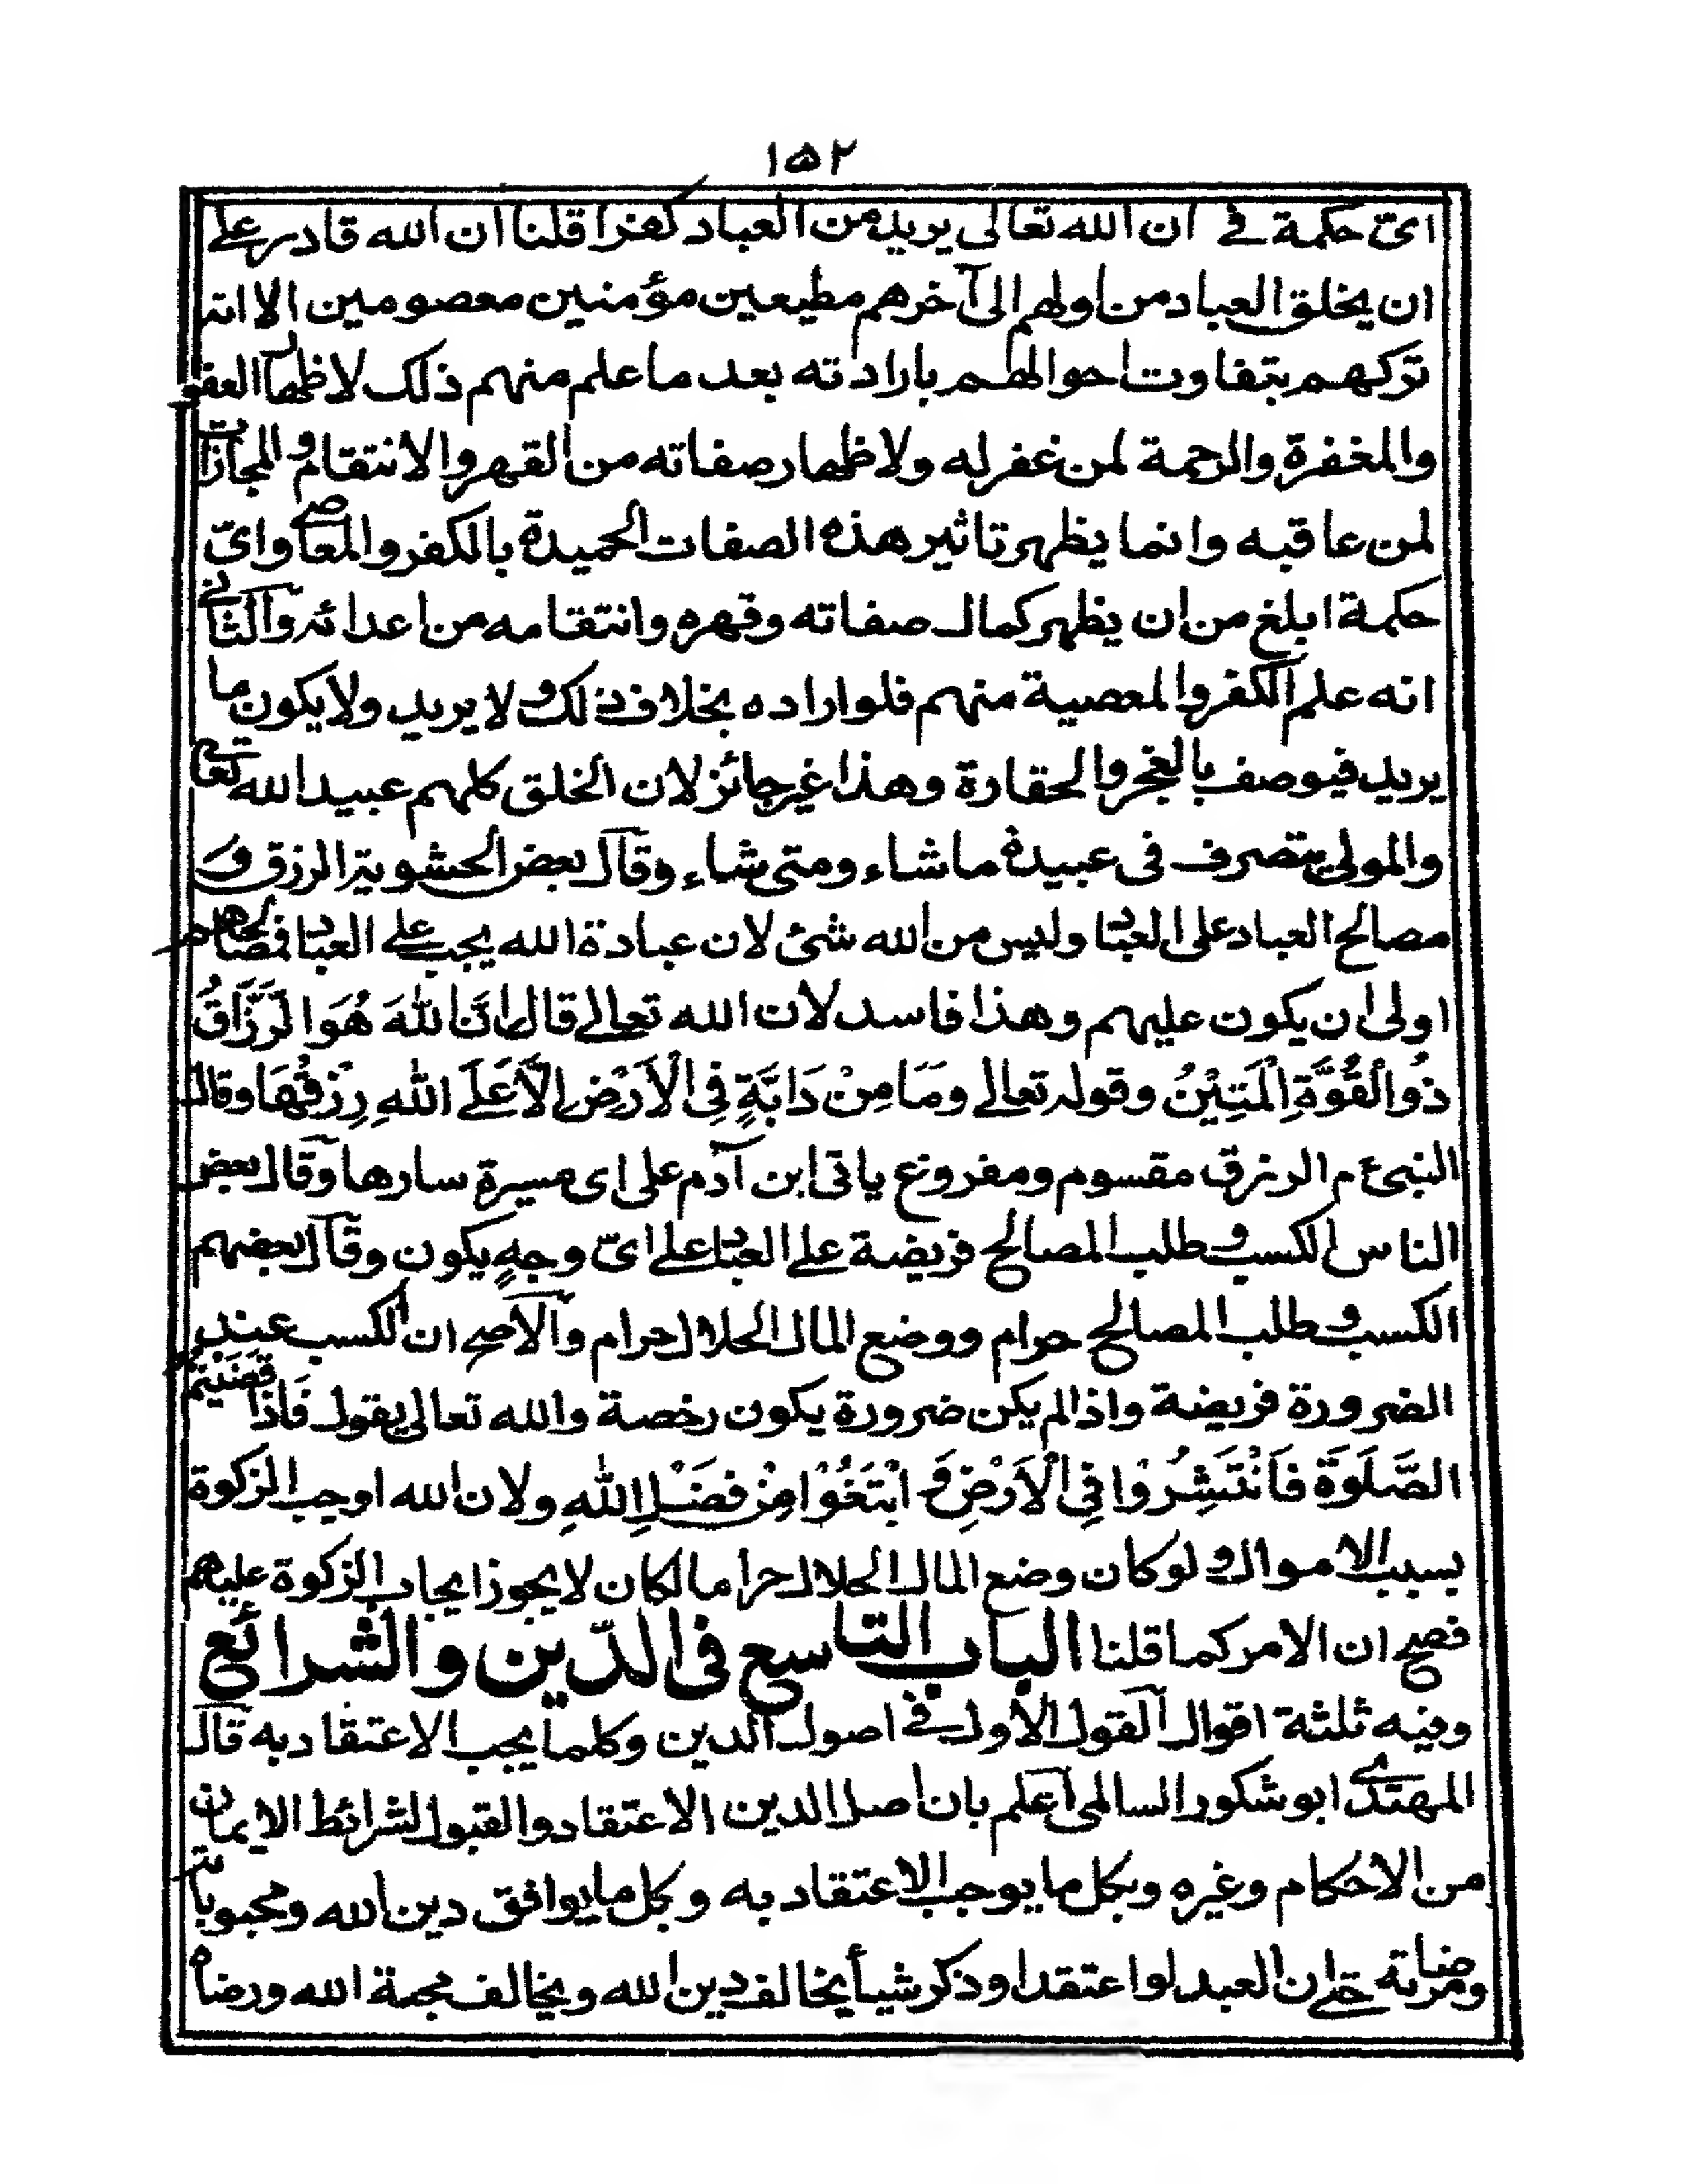 ١٥٢
اىّ حكمة فے ان الله تعالى يريد من العباد كفرا قلنا ان الله قادر علے
ان يخلق العباد من اولهم الى آخرهم مطيعين مؤمنين معصومين الا انه
تركهم بتفاوت احوالهم بارادته بعد ما علم منهم ذلك لاظهار العفو
والمغفرة والرحمة لمن غفر له ولاظهار صفاته من القهر والانتقام والمجازات
لمن عاقبه وانما يظهر تاثير هذه الصفات الحميدة بالكفر والمعاصے واىّ
حكمة ابلغ من ان يظهر كمال صفاته وقهره وانتقامه من اعدائه والثانے
انه علم الكفر والمعصية منهم فلو اراده بخلاف ذلك ولا يريد ولا يكون ما
يريد فيوصف بالعجز والحقارة وهذا غير جائز لان الخلق كلهم عبيد الله تعالے
والمولى يتصرف فى عبيده ما شاء ومتى شاء وقال بعض الحشوية الرزق و
مصالح العباد على العباد وليس من الله شئ لان عبادة الله يجب علے العباد فمصالحهم
اولى ان يكون عليهم وهذا فاسد لان الله تعالے قال اِنَّ اللهَ هُوَ الرَّزَّاقُ
ذُو الْقُوَّةِ الْمَتِيْنُ وقوله تعالے وَمَا مِنْ دَابَّةٍ فِى الْاَرْضِ اِلَّا عَلَے اللهِ رِزْقُهَا وقال
النبى ع م الرزق مقسوم ومفروغ ياتى ابن آدم على اى مسيرة سارها وقال بعض
الناس الكسب وطلب المصالح فريضة علے العباد علے اىّ وجهٍ يكون وقال بعضهم
الكسب وطلب المصالح حرام ووضع المال الحلال حرام والاصح ان الكسب عند
الضرورة فريضة واذا لم يكن ضرورة يكون رخصة والله تعالى يقول فَاِذَا قَضَيْتُمُ
الصَّلٰوةَ فَانْتَشِرُوْا فِى الْاَرْضِ وَ ابْتَغُوْا مِنْ فَضْلِ اللهِ ولان الله اوجب الزكوة
بسبب الاموال ولو كان وضع المال الحلال حراما لكان لا يجوز ايجاب الزكوة عليهم
فصح ان الامر كما قلنا الباب التاسع فى الدّين والشرائع
وفيه ثلثة اقوال القول الاول فے اصول الدين وكلما يجب الاعتقاد به قال
المهتدے ابو شكور السالمى اعلم بان اصل الدين الاعتقاد والقبول لشرائط الايمان
من الاحكام وغيره وبكل ما يوجب الاعتقاد به وبكل ما يوافق دين الله ومحبوباته
ومرضاته حتے ان العبد لو اعتقد او ذكر شيأ يخالف دين الله ويخالف محبة الله ورضاه